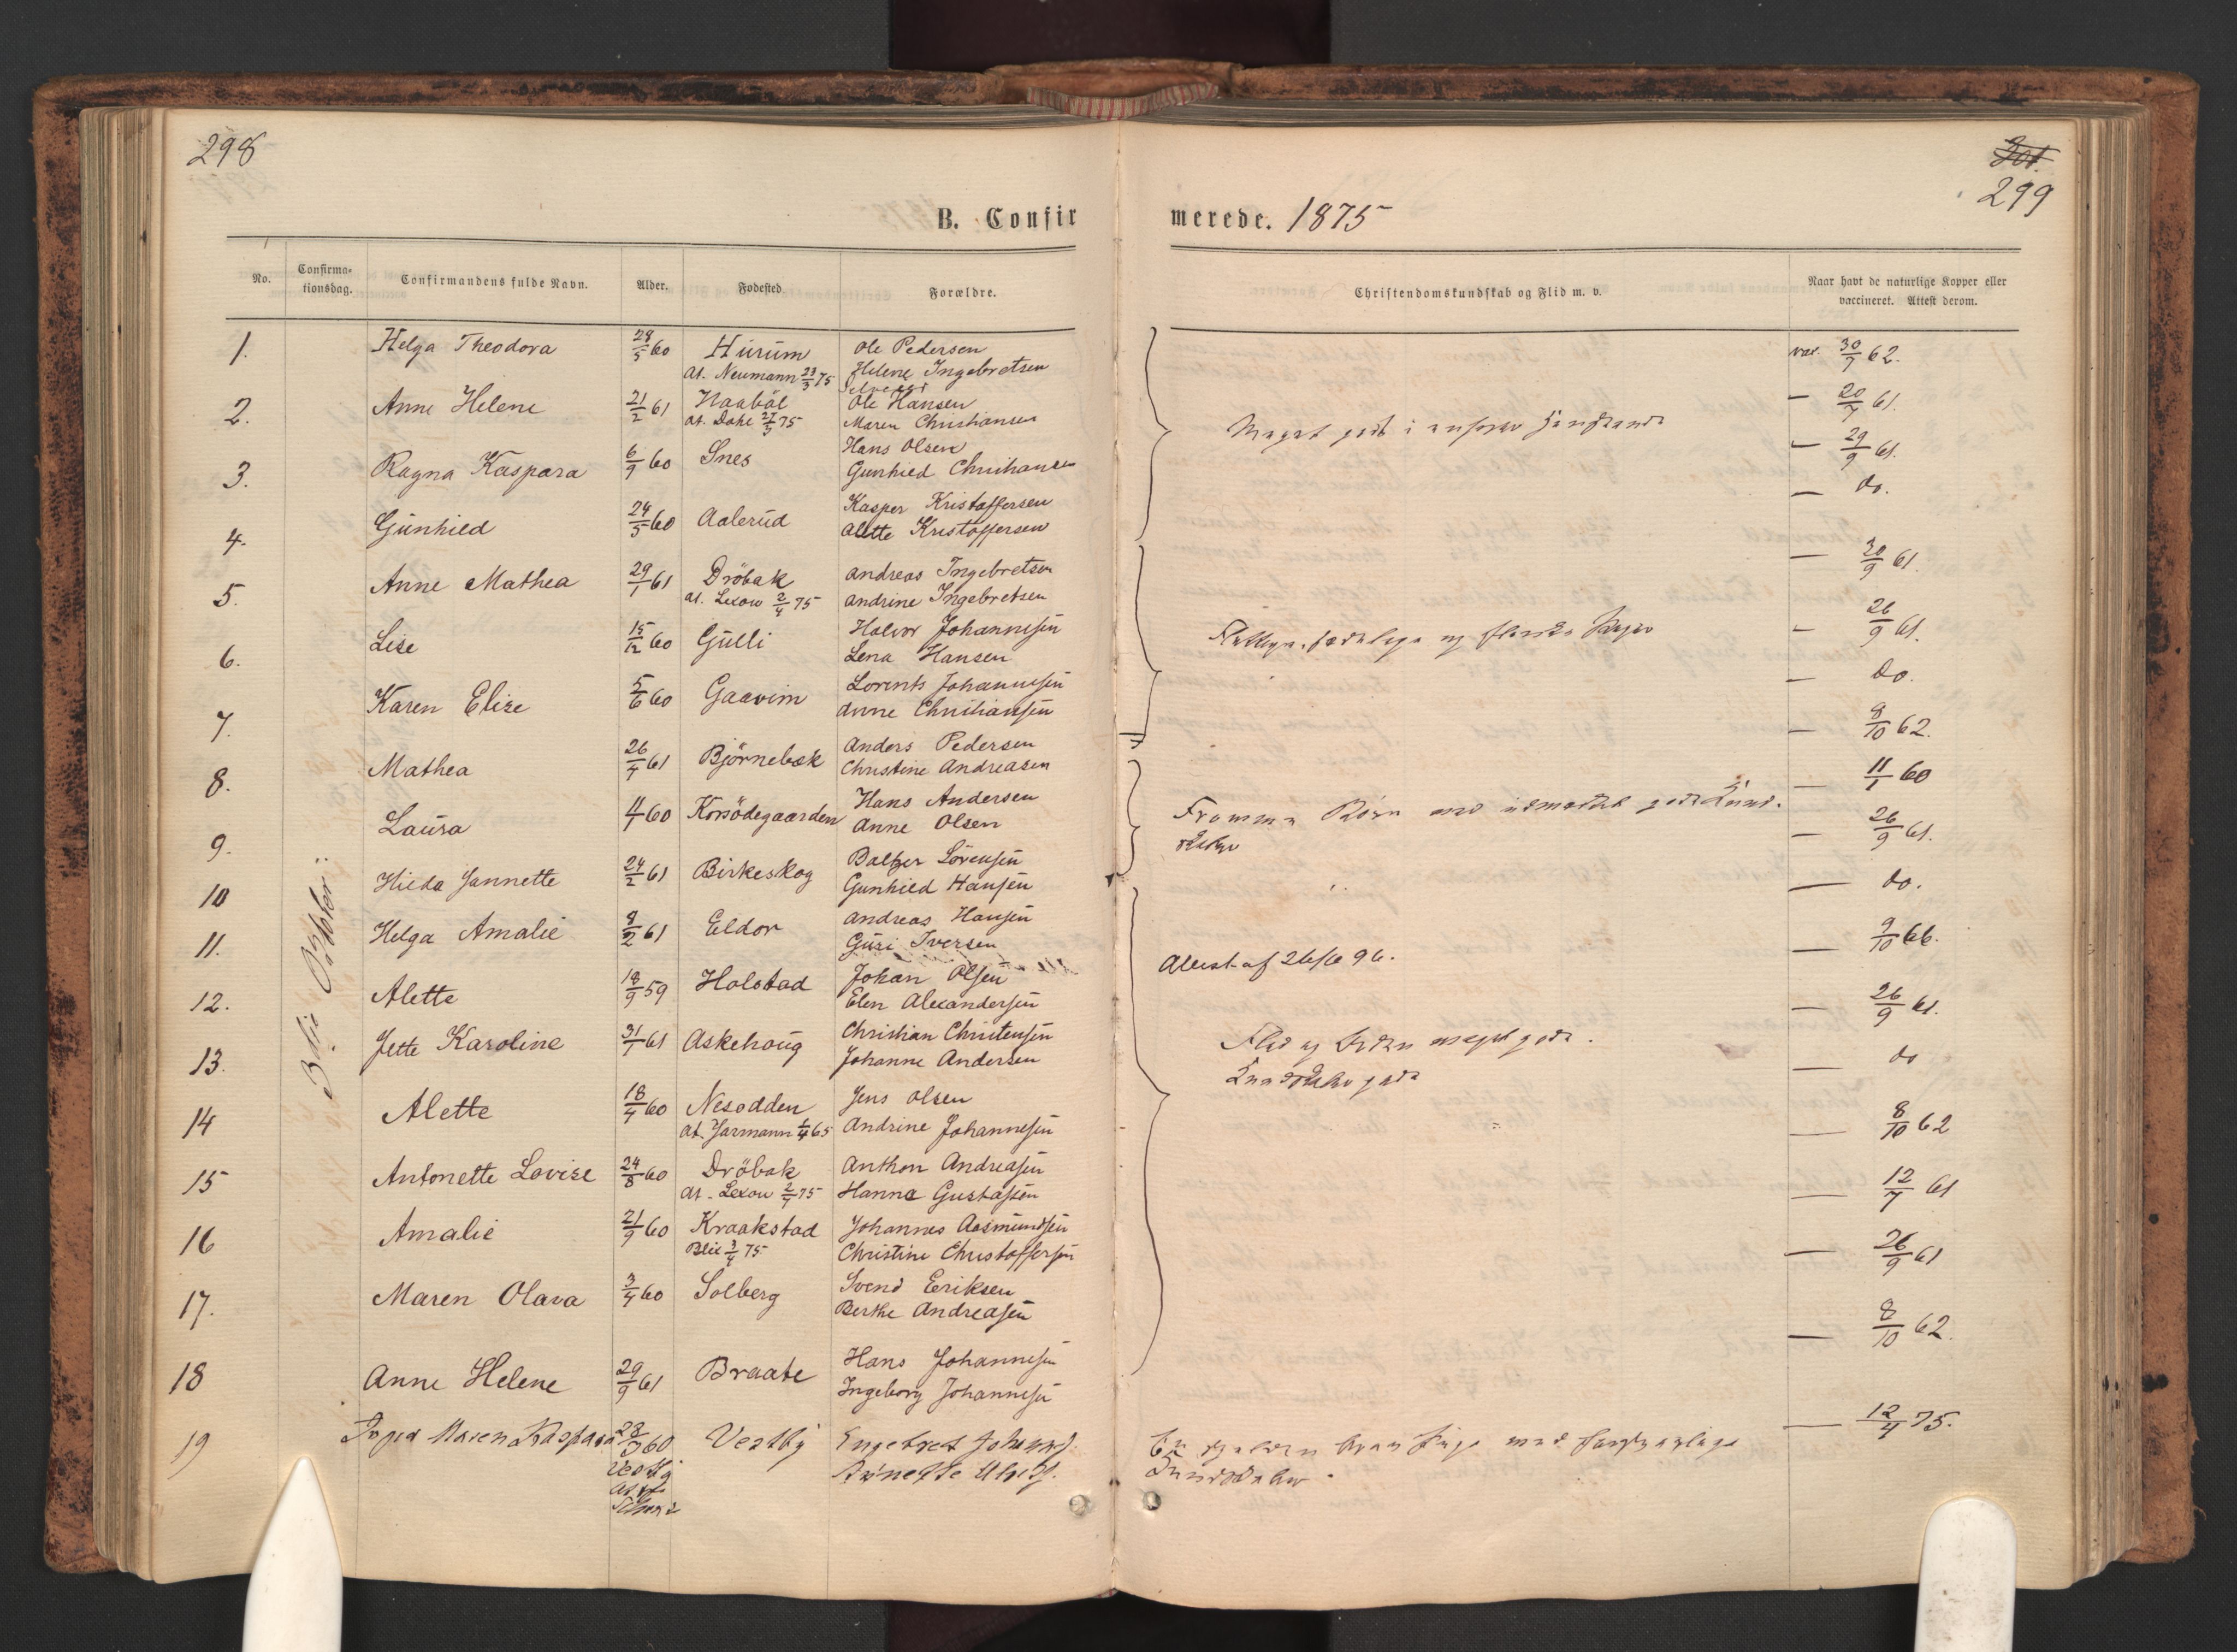 298
B. Confir
No. Confirma-tionsdag. Confirmandens fulde Navn. Alder. Fodested Forældre.
1. Helga Theodora 24/5 60 Hurum Ole Pedersen
At. Neumann 23/3 75 Helene Ingebretsen
2. Anne Helene 21/2 61 Haaböl Ole Hansen
At. Dahl 27/3 75 Maren Christiansen
3. Ragna Kaspara 6/9 60 Snes Hans Olsen
Gunhild Christiansen
4. Gunhild 24/5 60 Aalerud Kasper Kristoffersen
Alette Kristoffersen
5. Anne Mathea 29/1 61 Dröbak Andreas Ingebretsen
At. Lexow 2/4 75 Andrine Ingebretsen
6. Lise 15/12 60 Gulli Halvor Johannesen
Lena Hansen
7. Karen Elise 5/6 60 Gaavim Lorents Johannesen
Anne Christiansen
8. Mathea 26/4 61 Björnebek Anders Pedersen
Christine Andreasen
9. Laura 4/7 60 Korsödegaarden Hans Andersen
Anne Olsen
10 Hilda Jannette 24/2 61 Birkeskog Baltzer Sörensen
Gunhild Hansen
11. Helga Amalie 8/2 61 Eldor Andreas Hansen
Guri Iversen
12. Alette 18/9 59 Holstad Johan Olsen
Elen Alexandersen
13. Jette Karoline 31/1 61 Askehoug Christian Christensen
Johanne Andersen
14 Alette 18/4 60 Nesodden Jens Olsen
At. Jarmann 1/4 65 Andrine Johannesen
15 Antonette Lovise 24/8 60 Dröbak Anthon Andreasen
At. Lexow 2/4 75 Hanna Gustafsen
16 Amalie 21/9 60 Kraakstad Johannes Aasmundsen
Blix 3/4 75 Christine Christoffersen
17. Maren Olava 3/4 60 Solberg Svend Eriksen
Berthe Andreasen
18 Anne Helene 29/9 61 Braate Hans Johannesen
Ingeborg Johannesen
19 Inga Maren Kaspara 28/3 60 Vestby Engebret Johans.
Vestby
3die Oktober
299
merede. 1875
Christendomskundskab og Flid m. v. Naar havt de naturlige Kopper eller vaccineret. Attest derom.
vac. 30/7 62.
— 20/7 61.
Meget godt i enhver Henseende
— 29/9 61.
— do.
— 30/9 61.
— 26/9 61.
og flinke Piger
— do.
— 8/10 62.
— 11/1 60
Fromme Börn med udmærket gode Kund-
skaber
— 26/9 61.
— do.
— 9/10 66.
Attest af 26/6 96.
— 26/9 61.
Flid og Orden meget gode.
Kundskaber gode
— do
— 8/10 62
— 12/7 61
— 26/9 61
— 8/10 62.
— 12/4 75.
Kundskaber.